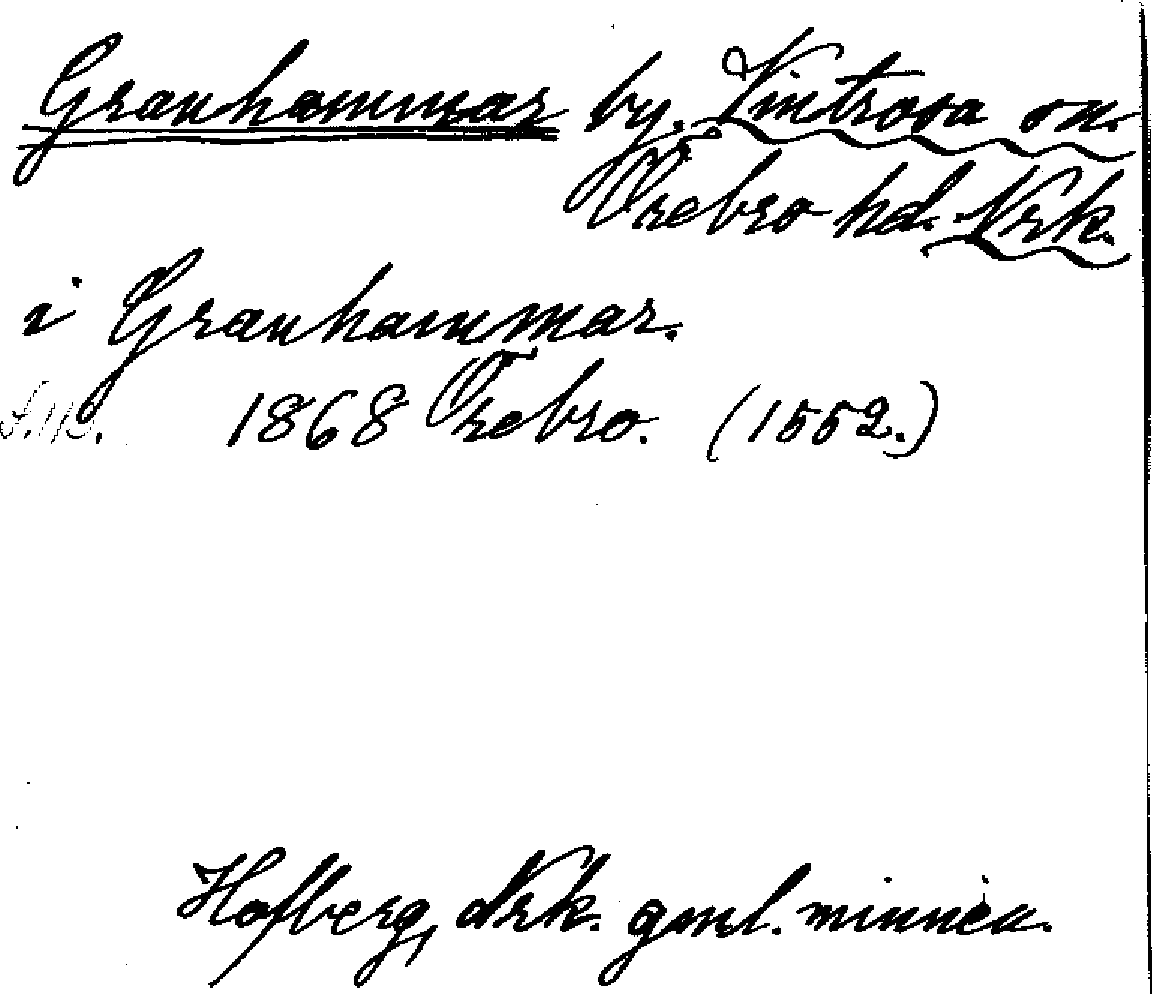 Granhammar by, Vintrosa sn.
Örebro hd. Nrk.
i Granhammar.
1868 Örebro. (1552.)
Hofberg, Nrk. gml. minnen.